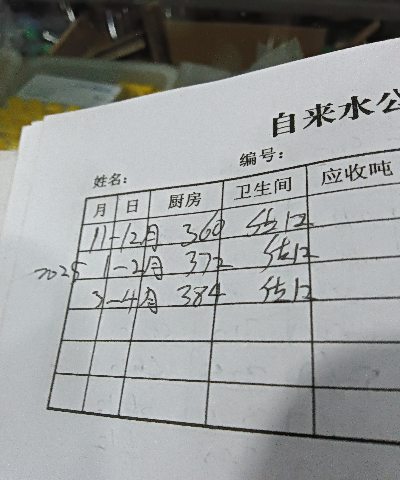 自来水公
编号：
姓名：
月 日 厨房 卫生间 应收吨
11-12月 360 估口
2025 1-2月 372 估口
3-4月 384 估口